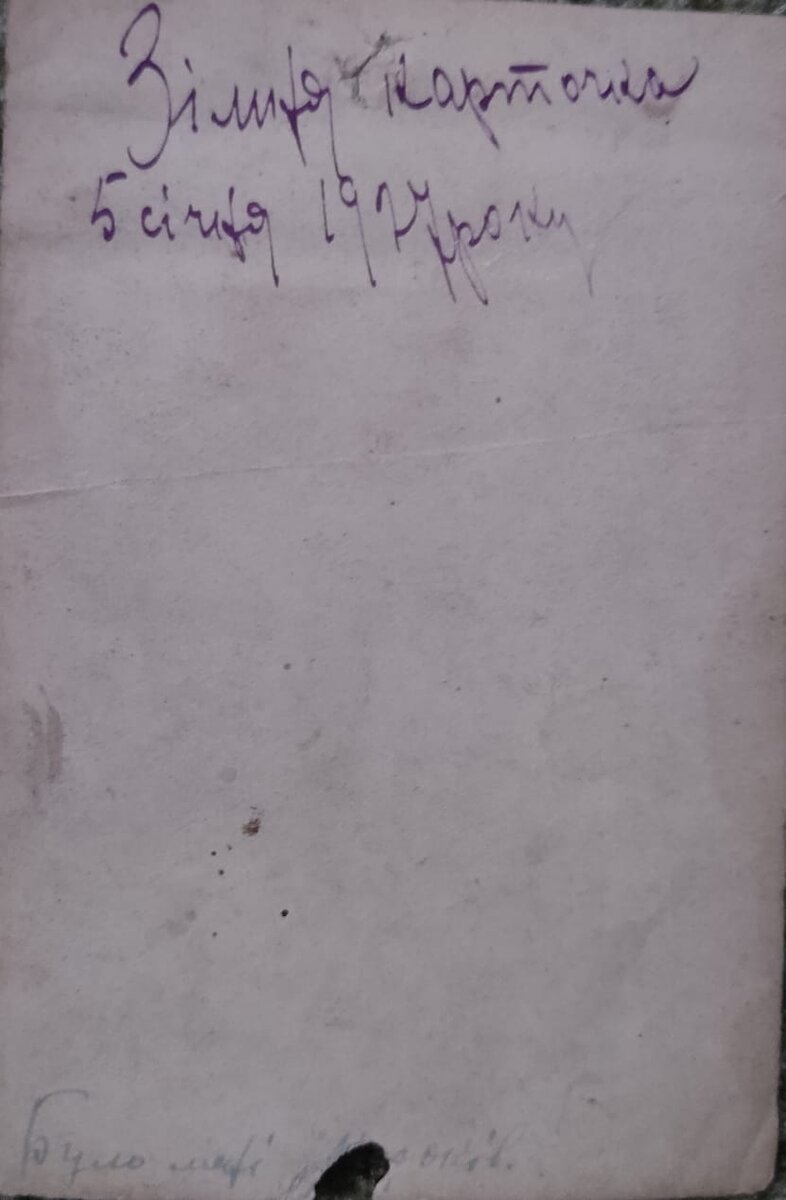 Зімня карточка
5 січня 1927 року
Було мені років.